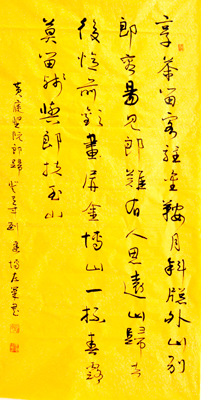 烹茶留客駐金鞍月斜牕外山别
郎容易見郎難有人思遠山歸去
後憶前歡畫屏金博山一杯春露
莫留殘與郎扶玉山
黄庭堅阮郎歸